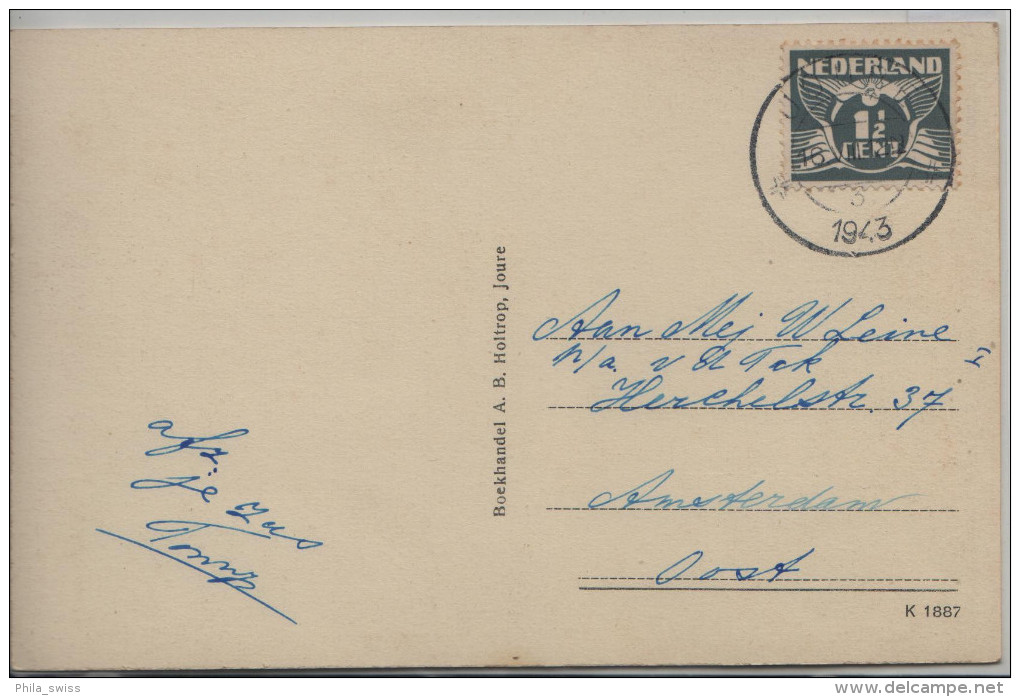 NEDERLAND
1½
CENT
16
3
1943
Boekhandel A. B. Holtrop, Joure
Aan Mej W Leine
p/a. v d Tak I
Herchelstr. 37
Amsterdam
Oost
afz:
je zus
K 1887
Phila_swiss
www.delcampe.net